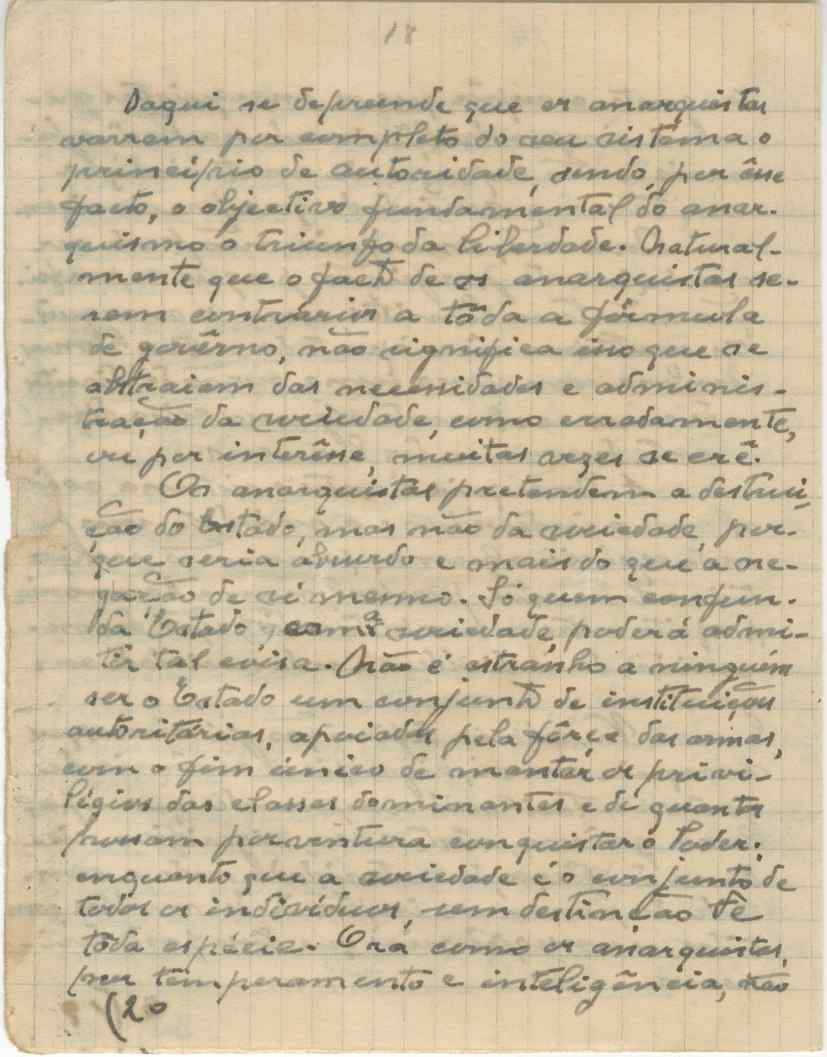 18
Daqui se depreende que os anarquistas
varrem por completo do seu sistêma o
princípio de autoridade, sendo, por êsse
facto, o objectivo fundamental do anar-
quismo o triunfo da liberdade. Natural-
mente que o facto de os anarquistas se-
rem contrários a tôda a fórmula
de govêrno, não significa isso que se
abstraiem das necessidades e adminis-
tração da sociedade, como erradamente,
ou por interêsse, muitas vezes se crê.
Os anarquistas pretendem a destrui-
ção do Estado, mas não da sociedade, por-
que seria absurdo e mais do que a ne-
gação de si mesmo. Só quem confun-
da Estado, com a sociedade, poderá admi-
tir tal coisa. Não é estranho a ninguém
ser o Estado um conjunto de instituições
autoritárias, apoiadas pela fôrça das armas,
com o fim único de manter os privi-
légios das classes dominantes e de quantos
possam porventura conquistar o Poder;
enquanto que a sociedade é o conjunto de
todos os indivíduos, sem destinção de
tôda espécie. Ora como os anarquistas,
por temperamento e inteligência, não
(20